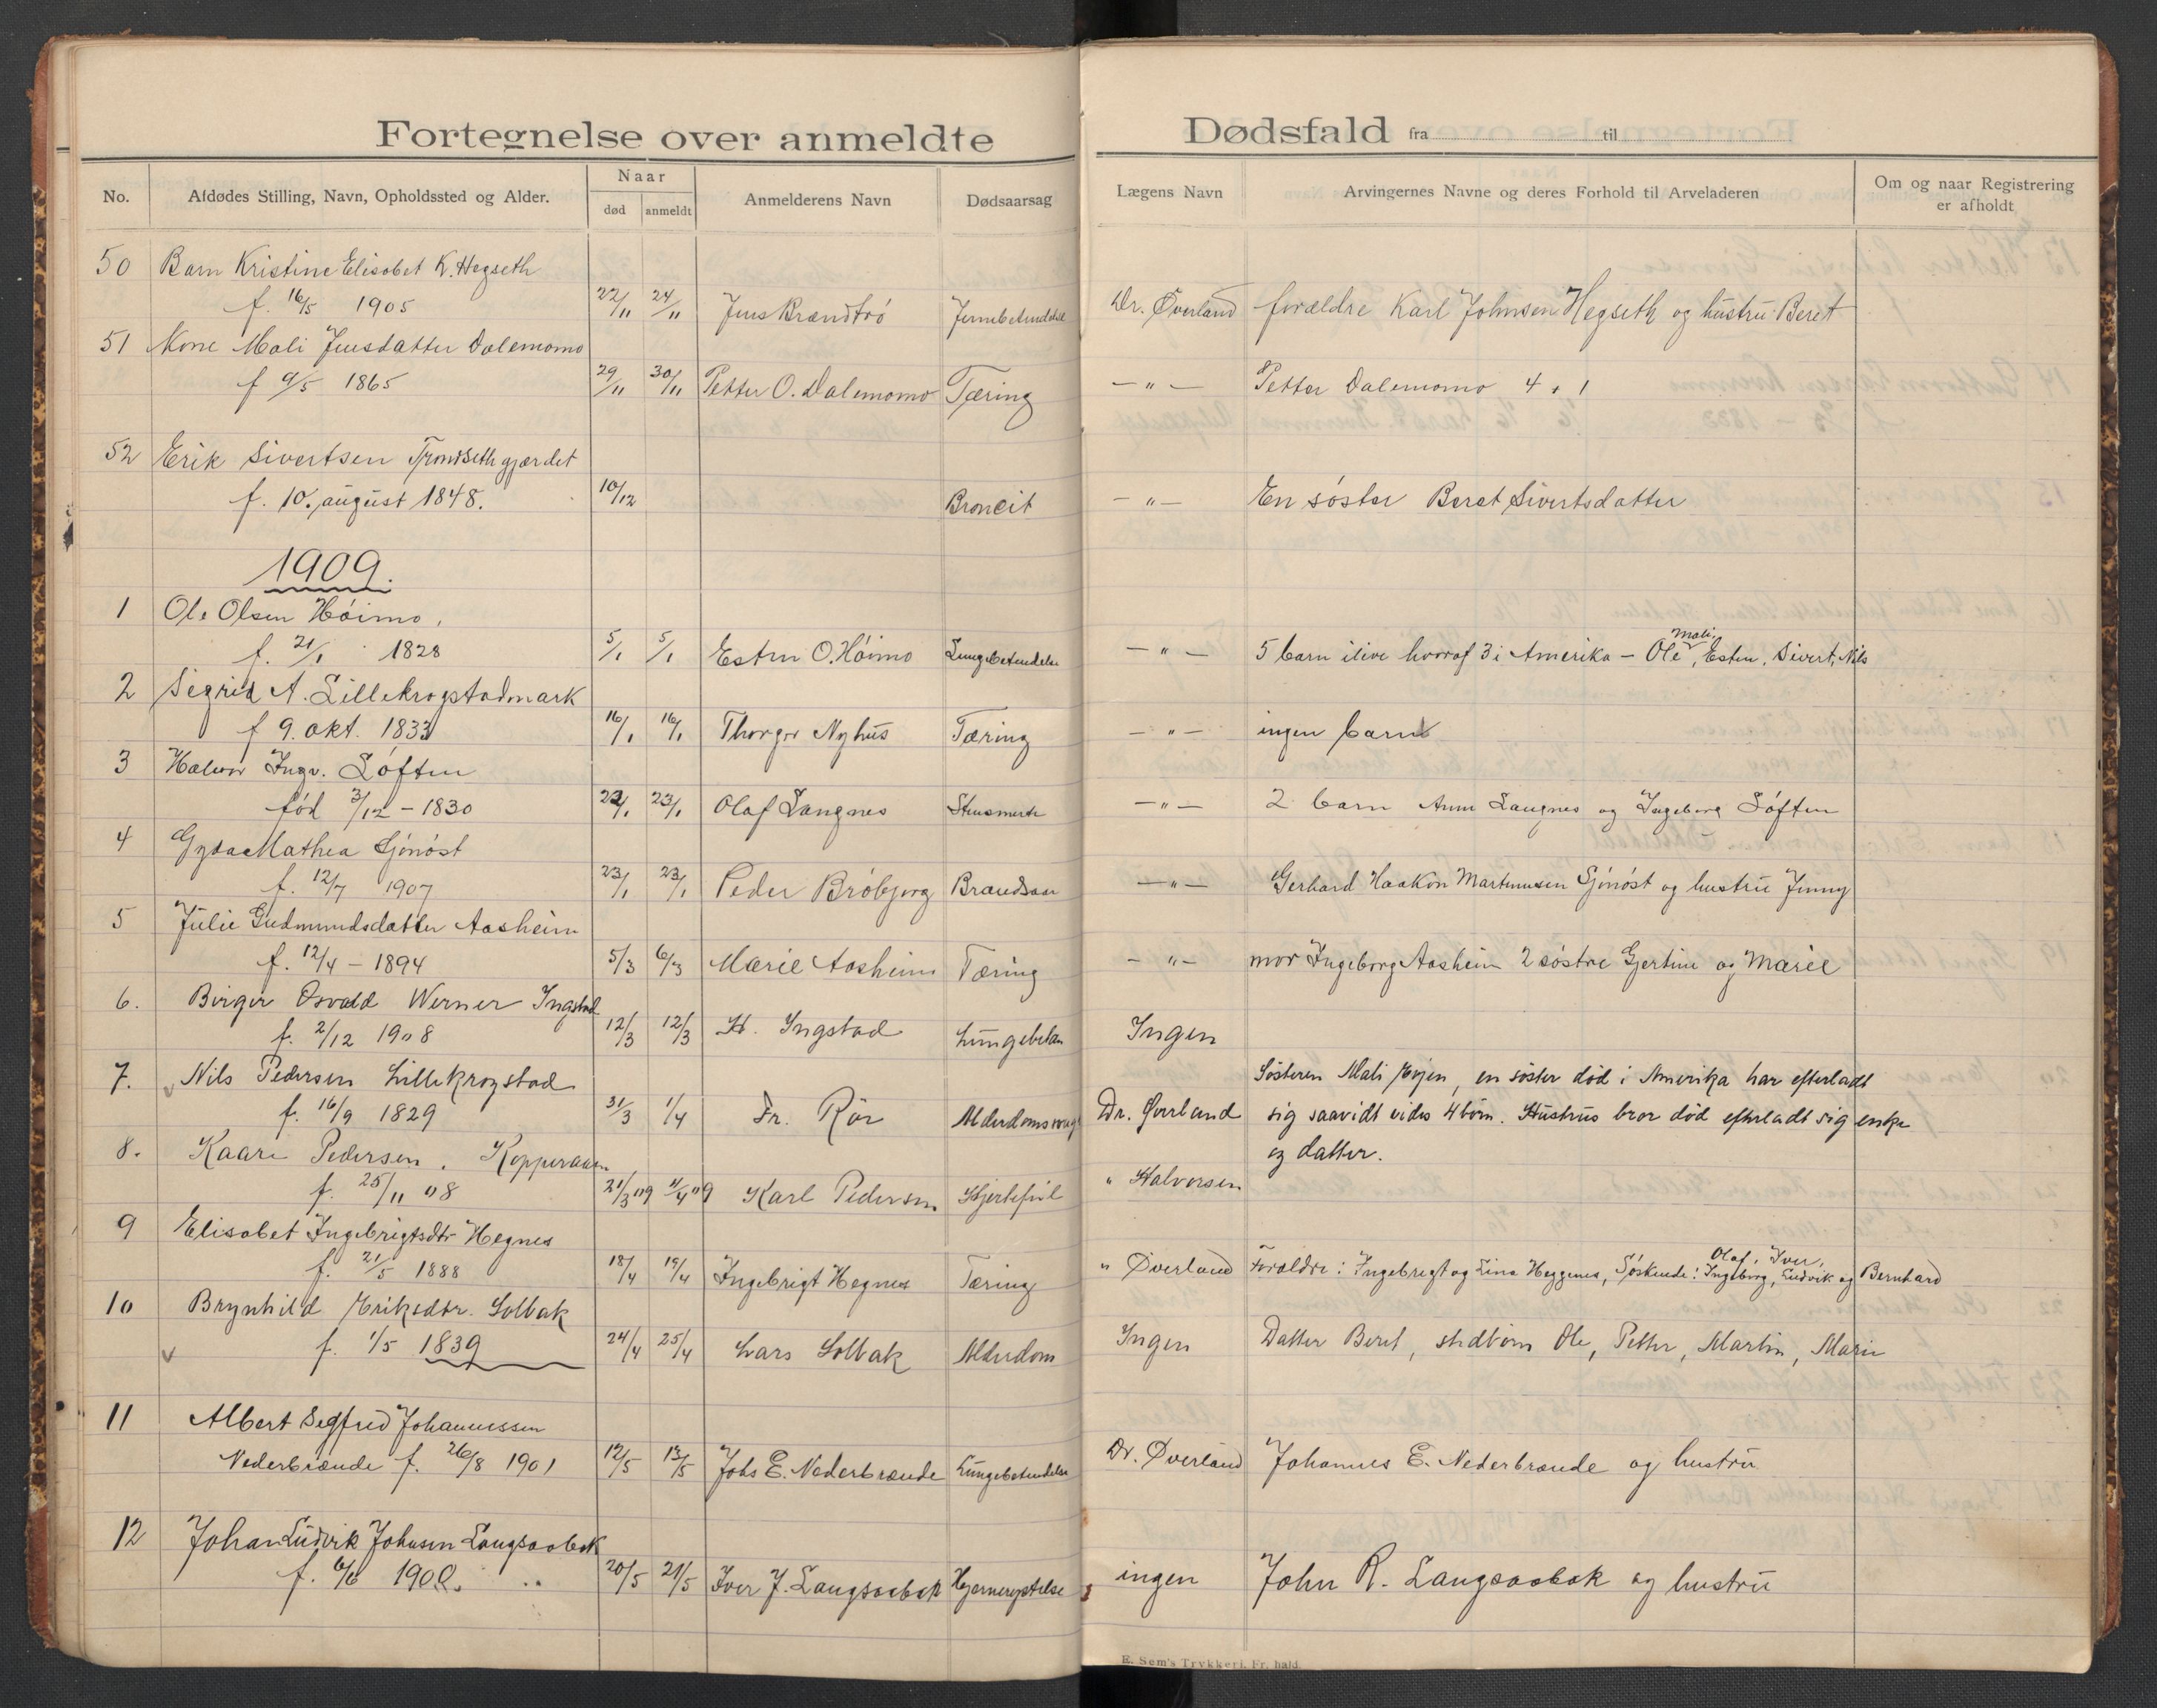 Fortegnelse over anmeldte Dødsfald fra til
No. Afdødes Stilling, Navn, Opholdssted og Alder. Naar død anmeldt Anmelderens Navn Dødsaarsag Lægens Navn Arvingernes Navne og deres Forhold til Arveladeren Om og naar Registrering er afholdt
50 Barn Kristine Elisabet K. Hegseth
f. 16/5 1905 22/11 24/11 Jens Brændtrø Dr. Øverland forældre Karl Johnsen Hegseth og hustru Beret
51 Kone Mali Jensdatter Dalemomo
f 9/5 1865 29/11 30/11 Petter O. Dalemomo Tæring — " — Petter Dalemomo 4 + 1
52 Erik Sivertsen Trondsethgjærdet
f. 10. august 1848. 10/12 Broncit — " — En søster Beret Sivertsdatter
1909.
1 Ole Olsen Høimo,
f. 21/1 1828 5/1 5/1 Esten O. Høimo Lungebetendelse — " — 5 barn ilive hvoraf 3 i Amerika — Ole, Mali, Esten, Sivert, Nils
2 Sigrid A. Lillekrogstadmark
f 9. okt. 1833 16/1 16/1 Thorger Nyhus Tæring — " — ingen barn
3 Halvor Ingv. Løften
fød 3/12 - 1830 23/1 Olaf Langnes — " — 2 barn Anne Langnes og Ingeborg Løften
4 Gyda Mathea Sjønøst
f. 12/7 1907 23/1 23/1 Peder Brøbjerg Brandsaar — " — Gerhard Haakon Martinusen Sjønøst og hustru Jenny
5 Julie Gudmundsdatter Aasheim
f. 12/4 - 1894 5/3 6/3 Marie Aasheim Tæring — " — mor Ingeborg Aasheim 2 søstre Gjertine og Marie
6. Birger Osvald Werner Ingstad
f. 2/12 1908 12/3 12/3 H. Ingstad Lungebetæn Ingen
7. Nils Pedersen Lillekrogstad Søsteren Mali Evjen, en søster død i Amerika har efterladt
f. 16/9 1829 31/3 1/4 Fr. Rør Alderdomssvag Dr. Øverland sig saavidt vides 4 børn. Hustrus bror død efterladt sig enke
og datter.
8. Kaare Pedersen. Kopperaaen
f. 25/11 08 21/3 09 11/4 09 Karl Pedersen Hjertefeil " Halvorsen
9 Elisabet Ingebrigtsdtr Hegnes
f. 21/5 1888 18/4 19/4 Ingebrigt Hegnes Tæring " Øverland Forældre: Ingebrigt og Lina Heggenes, Søskende: Olaf, Iver, Ingeborg, Ludvik og Bernhard
10 Brynhild Eriksdtr. Solbak
f. 1/5 1839 24/4 25/4 Lars Solbak Alderdom Ingen Datter Beret, stedbørn Ole, Petter, Martin, Marie
11 Albert Segfred Johannessen
Nederbrænde f. 26/8 1901 12/5 13/5 Johs E. Nederbrænde Lungebetendelse Dr. Øverland Johannes E. Nederbrænde og hustru
12 Johan Ludvik Johnsen Langsaabak
f. 6/6 1900. 20/5 21/5 Iver J. Langsaabak Hjernerystelse ingen John R. Langsaabak og hustru
E. Sem's Trykkeri, Fr. hald.